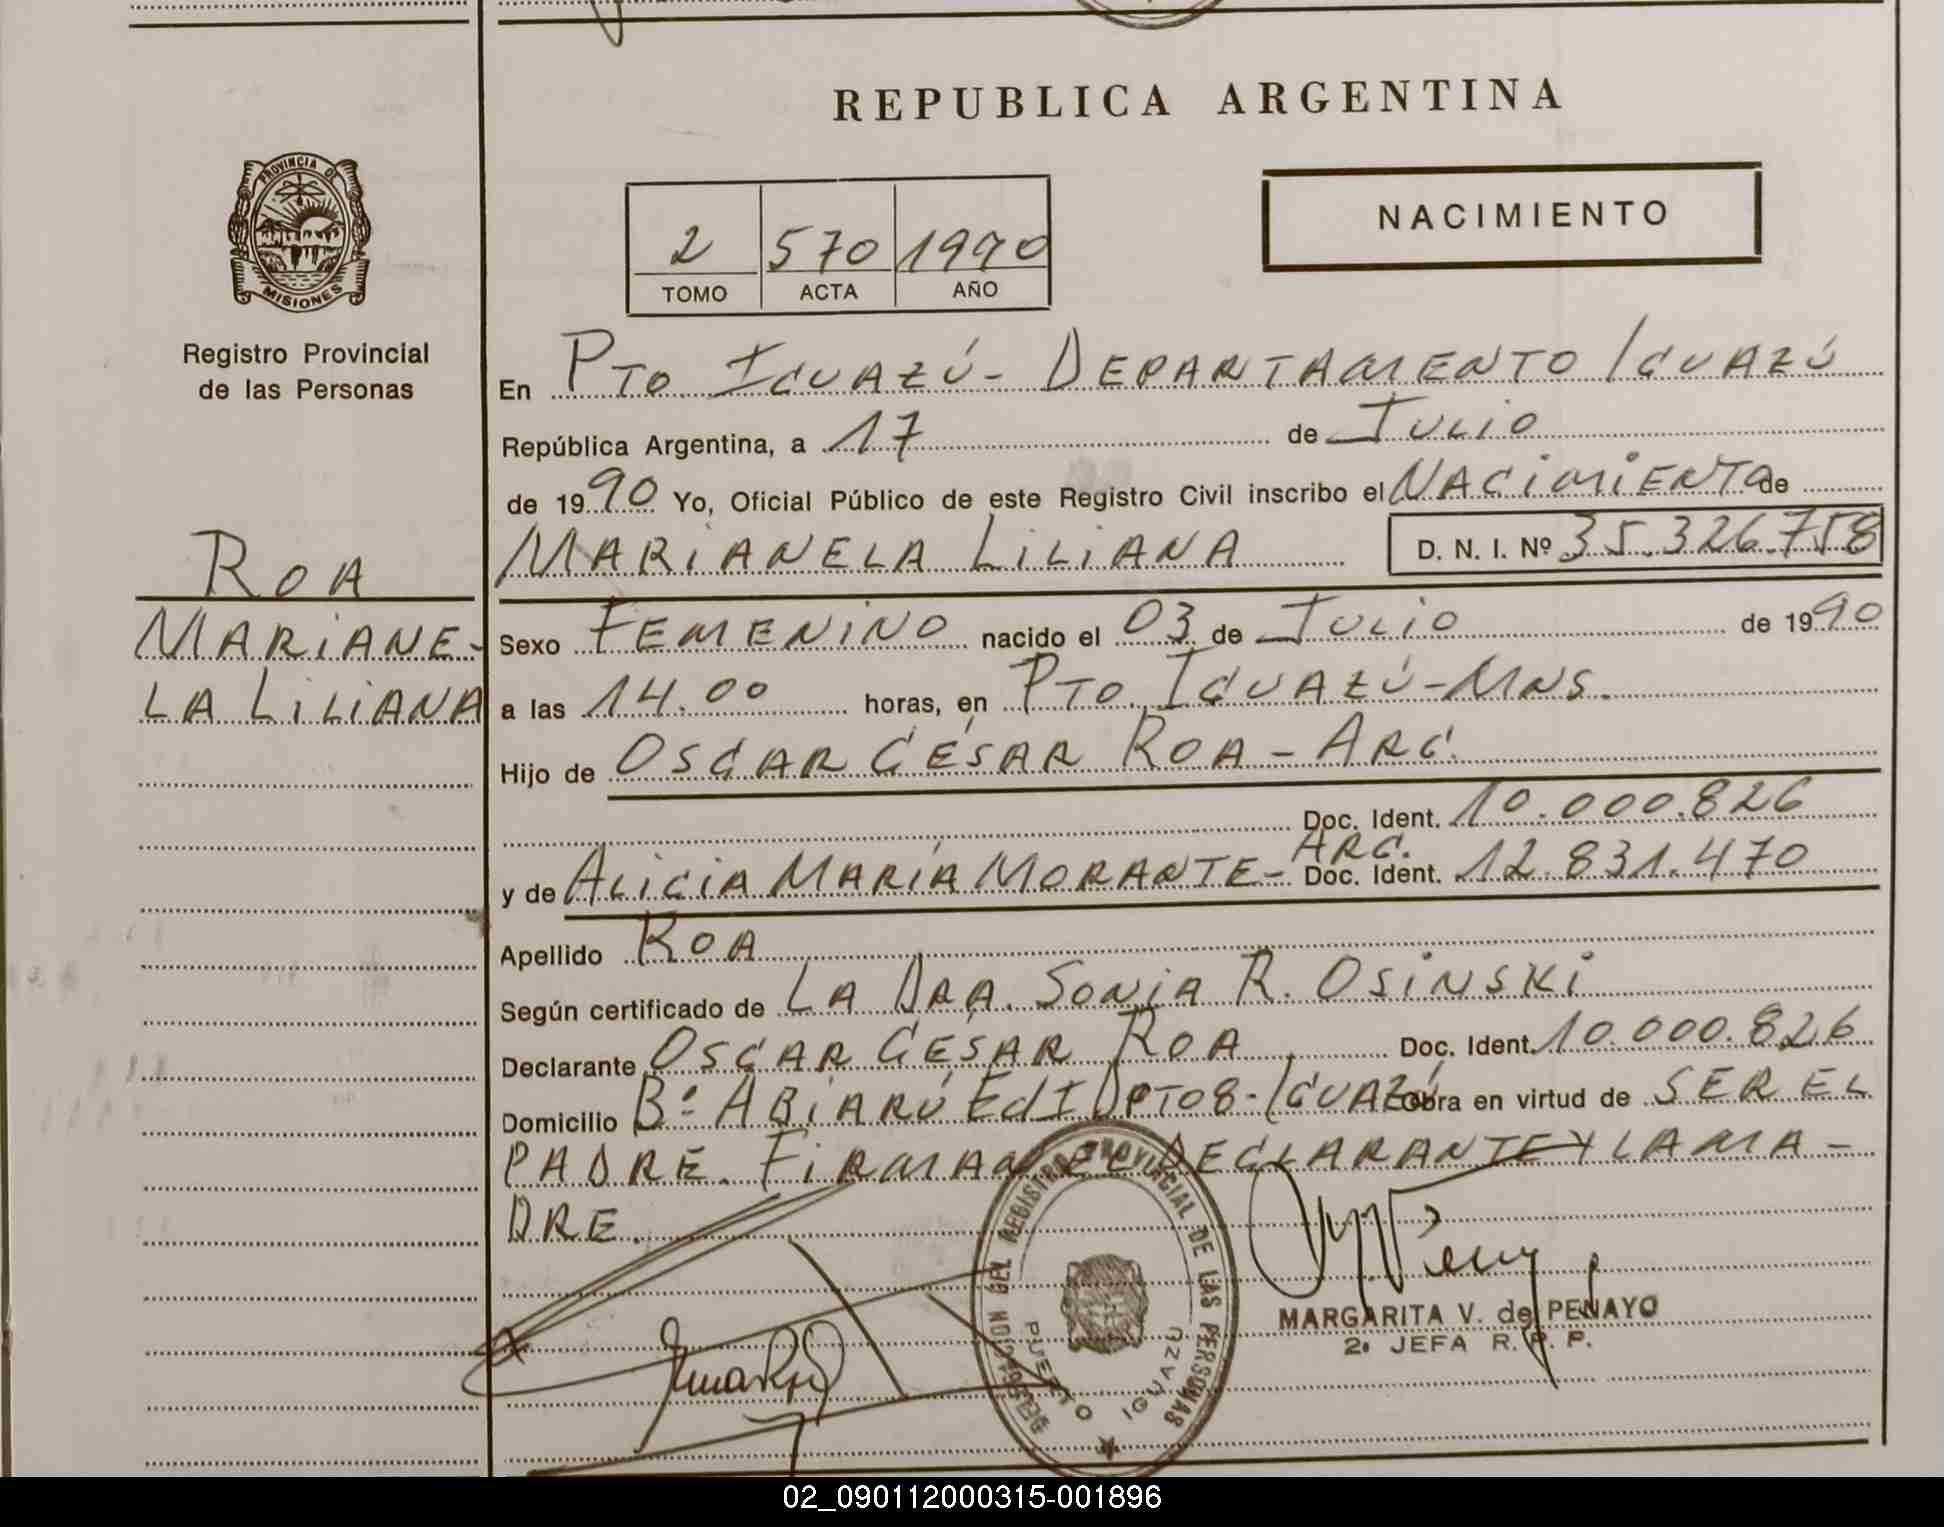 REPUBLICA ARGENTINA
PROVINCIA DE
MISIONES
Registro Provincial
de las Personas
2 570 1990
TOMO ACTA AÑO
NACIMIENTO
En PTO. IGUAZÚ - DEPARTAMENTO IGUAZÚ
República Argentina, a 17 de JULIO
de 1990 Yo, Oficial Público de este Registro Civil inscribo el NACIMIENTO de
MARIANELA LILIANA D. N. I. Nº 35.326.758
ROA
MARIANE-
LA LILIANA
Sexo FEMENINO nacido el 03 de JULIO de 1990
a las 14.00 horas, en PTO. IGUAZÚ - MNS.
Hijo de OSCAR CÉSAR ROA - ARG.
Doc. Ident. 10.000.826
ARG.
y de ALICIA MARÍA MORANTE - Doc. Ident. 12.831.470
Apellido ROA
Según certificado de LA DRA. SONIA R. OSINSKI
Declarante OSCAR CÉSAR ROA Doc. Ident. 10.000.826
Domicilio Bº ABIARÚ Ed I DPTO 8 - IGUAZÚ Obra en virtud de SER EL
PADRE. FIRMAN EL DECLARANTE Y LA MA-
DRE.
DELEGACION DEL REGISTRO PROVINCIAL DE LAS PERSONAS
PUERTO IGUAZU
MARGARITA V. de PENAYO
2ª JEFA R. P. P.
02_090112000315-001896